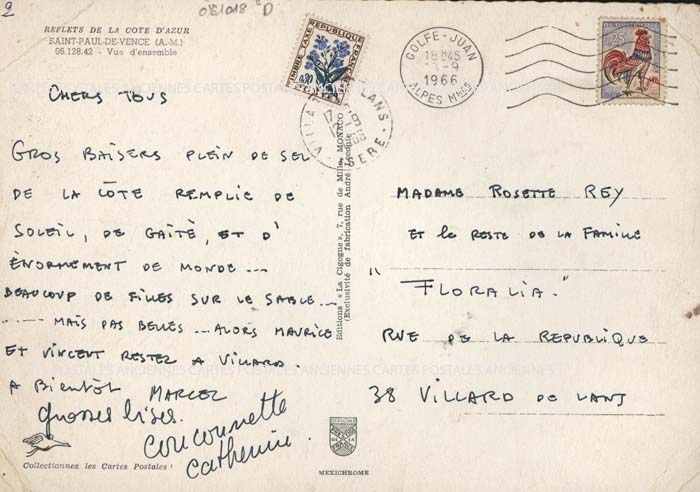 2
081018 "D
REFLETS DE LA COTE D'AZUR
SAINT-PAUL-DE-VENCE (A.-M.)
06.128.42 - Vue d'ensemble
CHERS TOUS
GROS BAISERS PLEIN DE SEL
DE LA CÔTE REMPLIE DE
SOLEIL, DE GAITÈ, ET D'
ÈNORMEMENT DE MONDE ...
BEAUCOUP DE FILLES SUR LE SABLE ...
..... MAIS PAS BELLES ... ALORS MAURICE
ET VINCENT RESTEZ A VILLARD.
A BIENTÔT MARCEL
grosses bises.
coucounette
catherine.
Collectionnez les Cartes Postales !
Editions « La Cigogne », 7, rue de Millo, MONACO
(Exclusivité de fabrication André Leconte)
MEXICHROME
GOLFE-JUAN
18H45
-9
1966
ALPES Mmes
17
ISERE
0,25
MADAME ROSETTE REY
ET le RESTE DE LA FAMILLE
"FLORALIA."
RUE DE LA REPUBLIQUE
38 VILLARD DE LANS
ANCIENNES CARTES POSTALES ANCIENNES